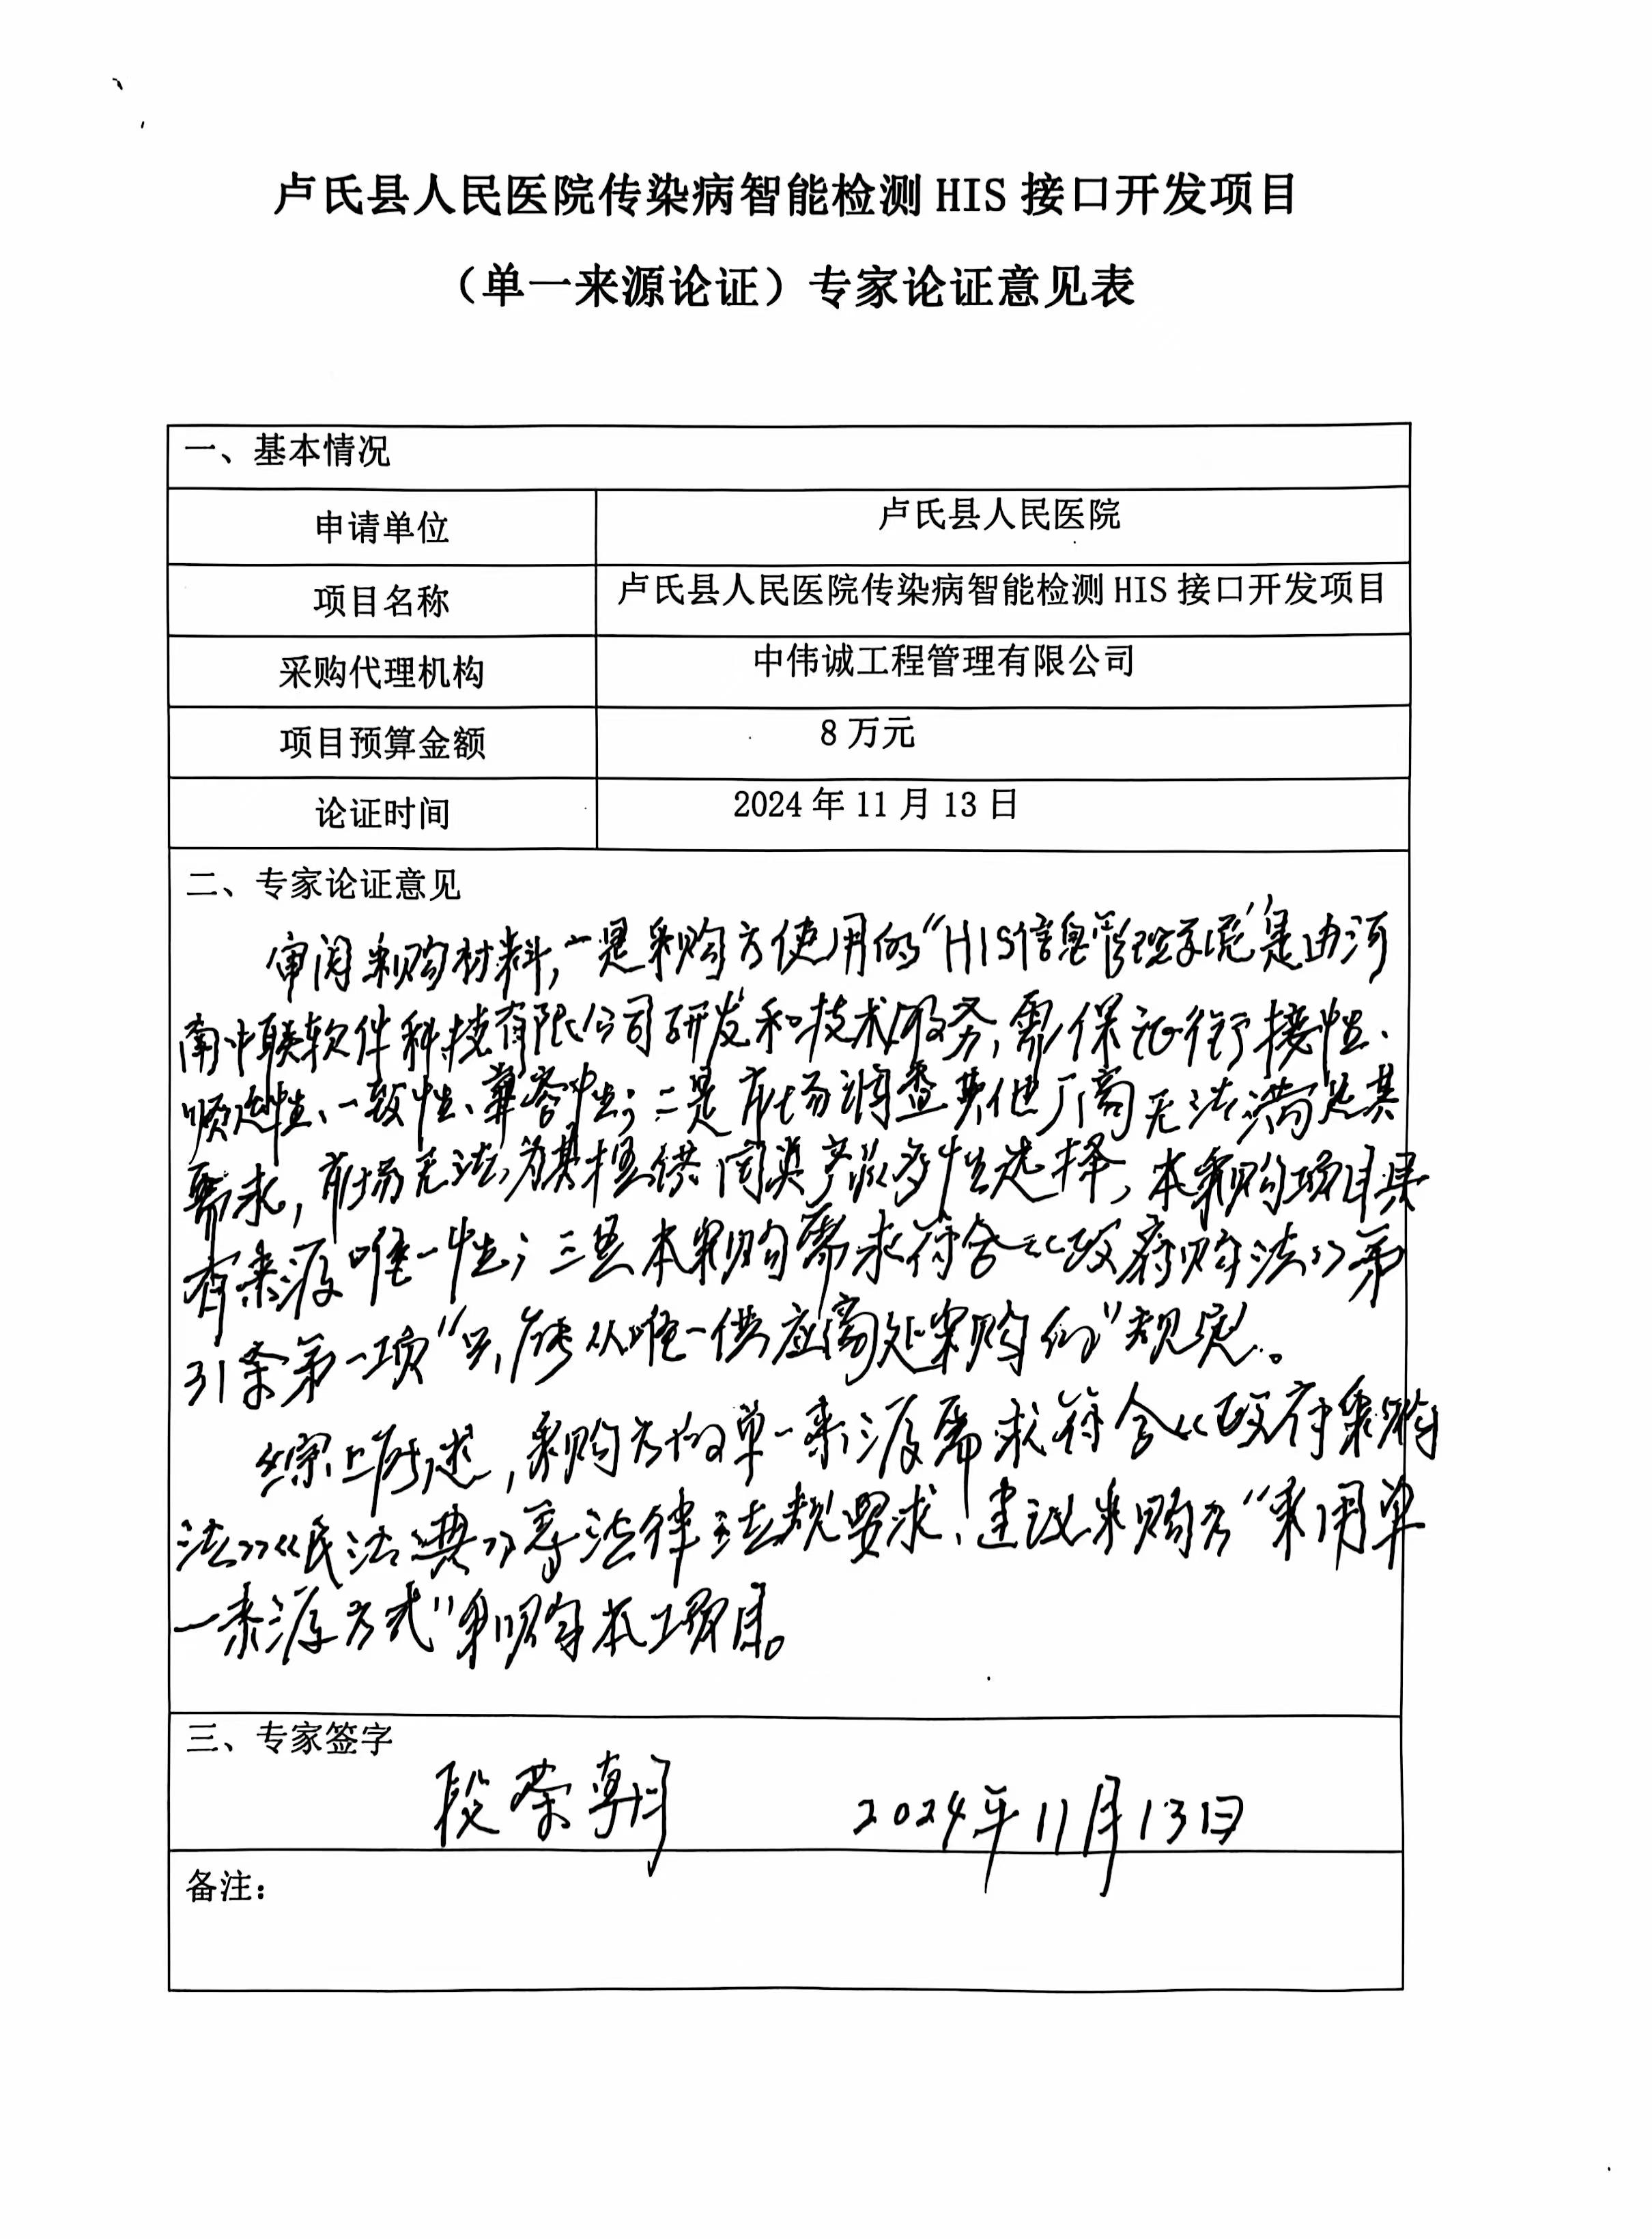 卢氏县人民医院传染病智能检测 HIS 接口开发项目
（单一来源论证）专家论证意见表
一、基本情况
申请单位 卢氏县人民医院
项目名称 卢氏县人民医院传染病智能检测 HIS 接口开发项目
采购代理机构 中伟诚工程管理有限公司
项目预算金额 8 万元
论证时间 2024 年 11 月 13 日
二、专家论证意见
审阅采购材料，一是采购方使用的“HIS信息管理系统”是由河
南中联软件科技有限公司研发和技术服务，需保证衔接性、
顺延性、一致性、兼容性；二是市场调查其他厂商无法满足其
需求，市场无法为其提供同类产品多性选择，本采购项目具
有来源唯一性；三是本采购需求符合《政府购法》第
31条第一项“只能从唯一供应商处采购的”规定。
综上所述，采购方的单一来源需求符合《政府采购
法》《民法典》等法律法规要求，建议采购方“采用单
一来源方式”采购本项目。
三、专家签字
段荣朝 2024年11月13日
备注：